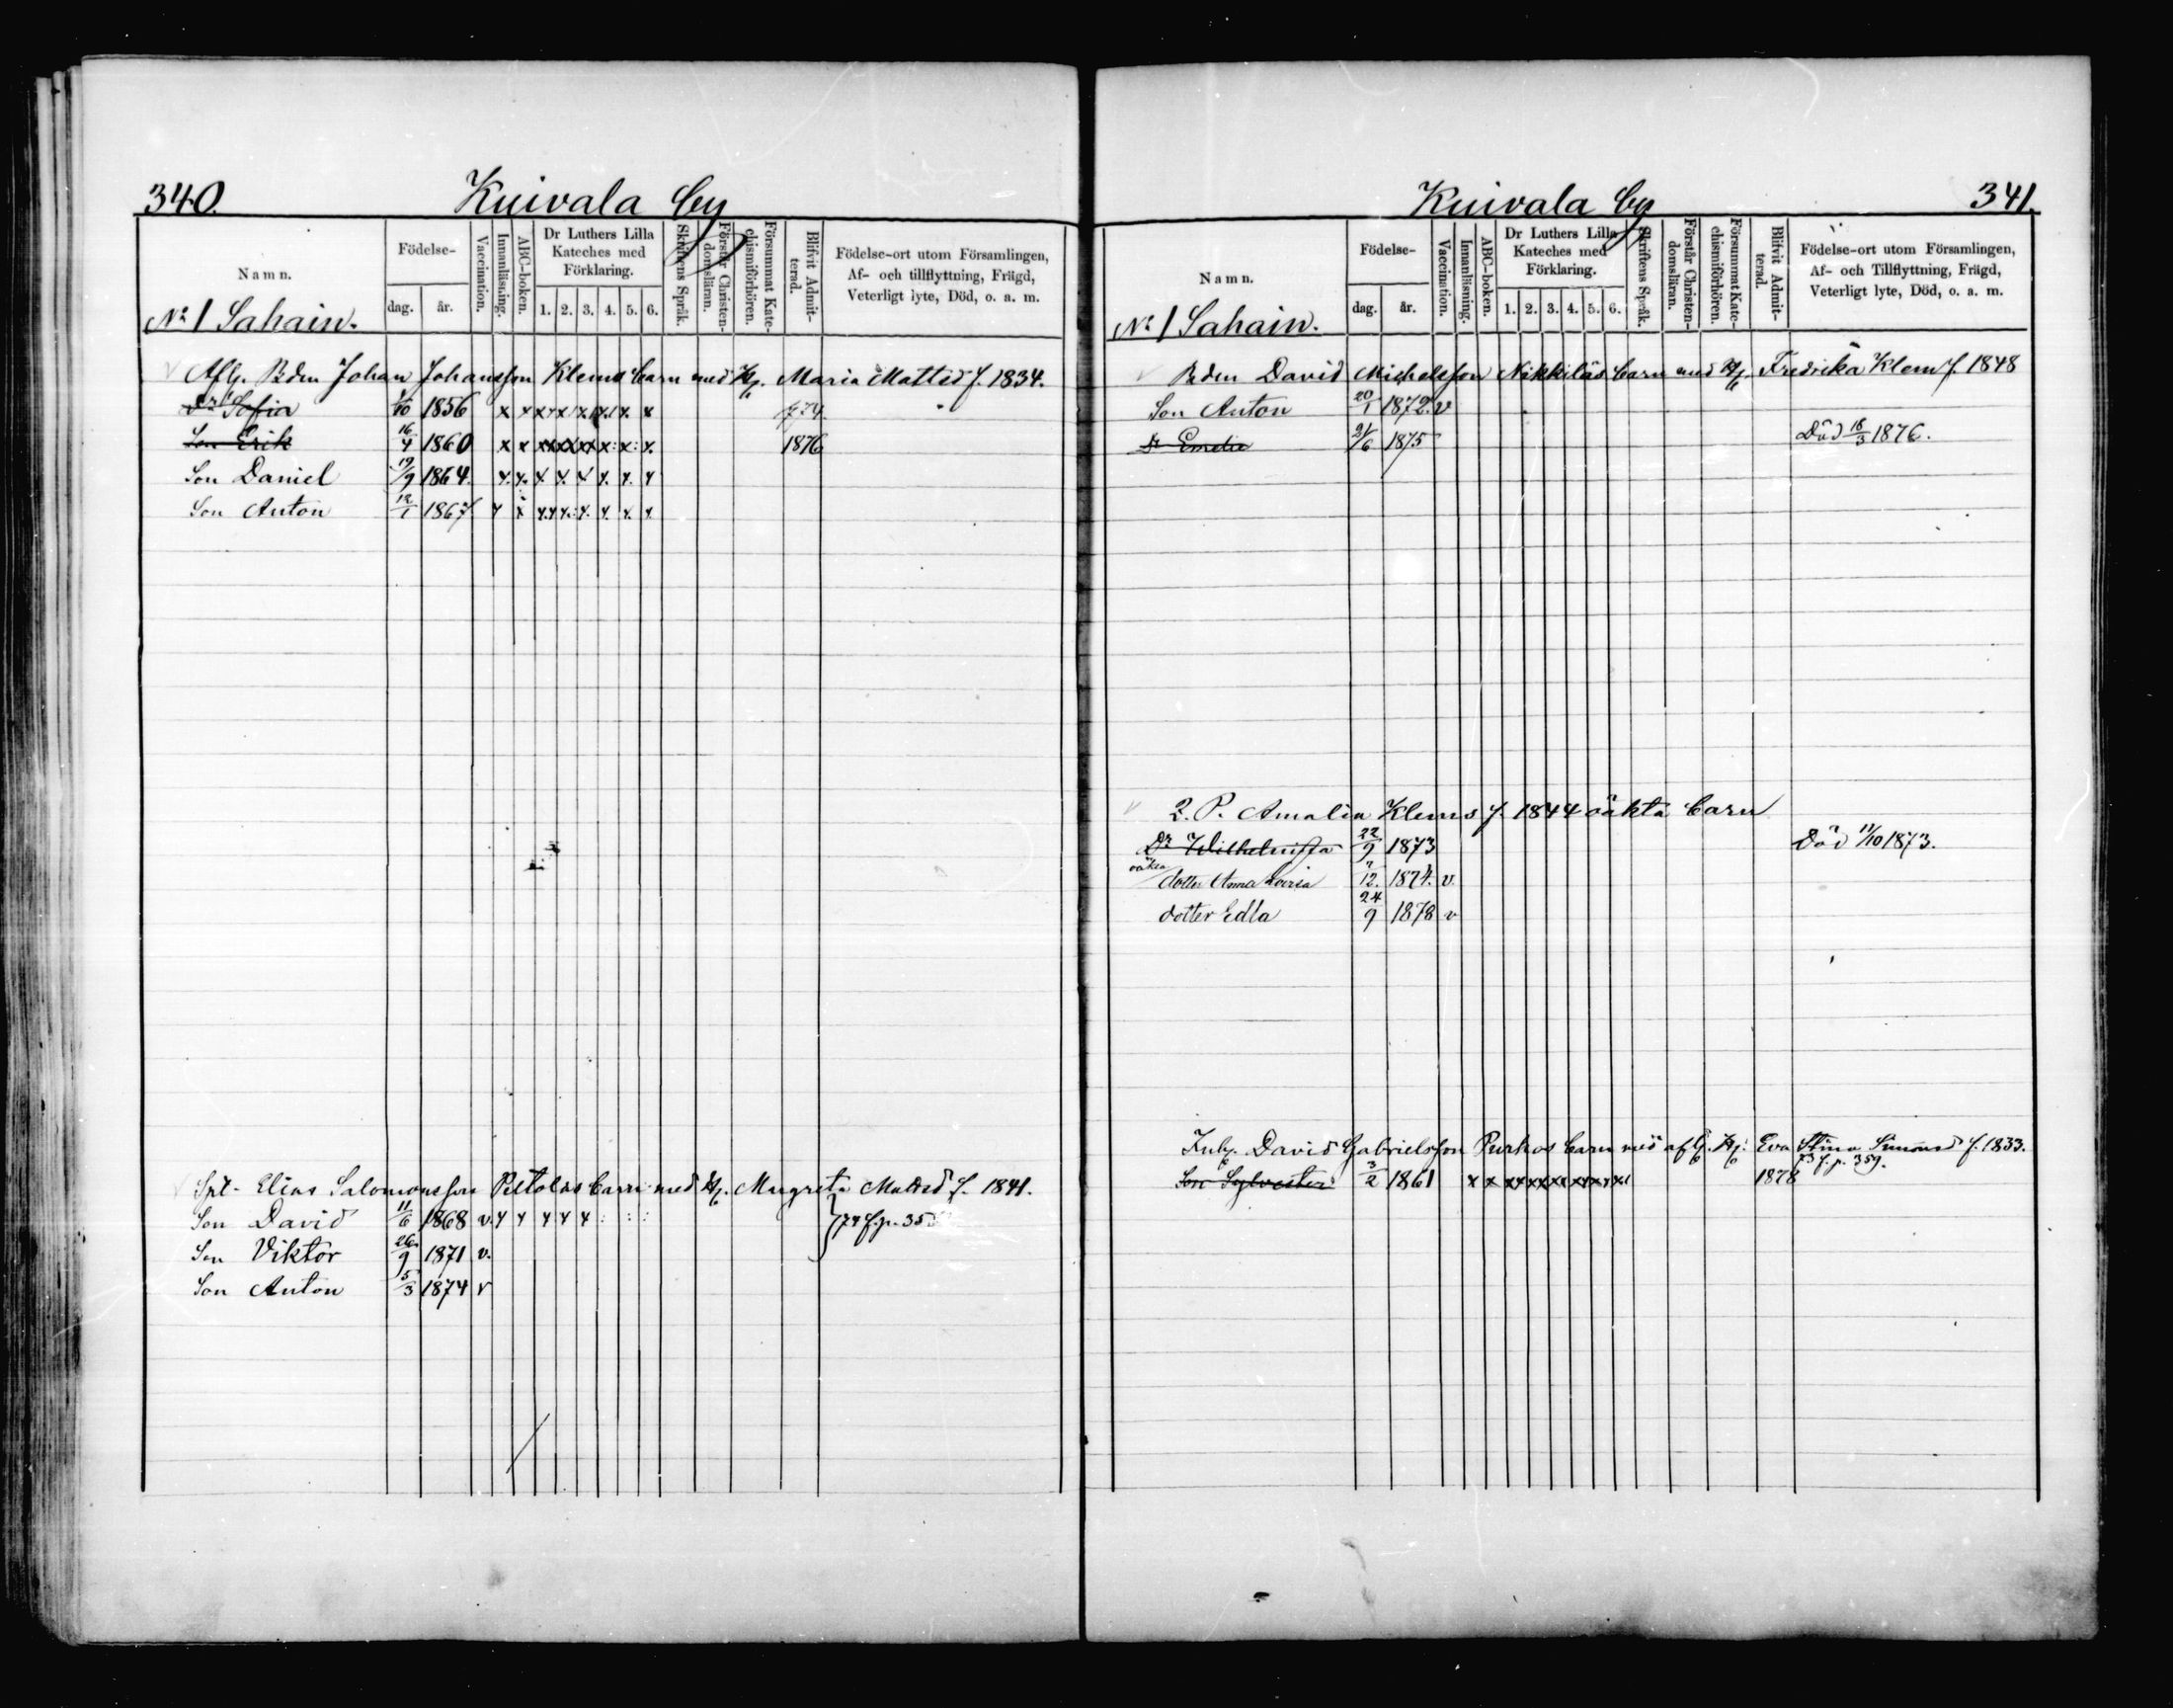 340. Kuivala by
Namn. Födelse- Vaccination. Innanläsning. ABC-boken. Dr Luthers Lilla Kateches med Förklaring. Skriftens Språk. Förstår Christendomsläran. Försummat Katechismiförhören. Blifvit Admitterad. Födelse-ort utom Församlingen, Af- och tillflyttning, Frägd, Veterligt lyte, Död, o. a. m.
dag. år. 1. 2. 3. 4. 5. 6.
No 1 Sahain.
Afl. Bdm Johan Johansson Klems barn med H. Maria Mattsd f. 1834.
Dr Sofia 1/10 1856 x x x x x x x x 74
Son Erik 16/4 1860 x x x x x x x x 1876
Son Daniel 19/9 1864 x x x x x x x x
Son Anton 12/1 1867 x x x x x x x x
Spt. Elias Salomonsson Pietolas barn med H. Margreta Mattsd f. 1841.
Son David 11/6 1868 v. x x x x x
} 74 f. p. 35
Son Viktor 26/9 1871 v.
Son Anton 5/3 1874 v
Kuivala by 341.
Namn. Födelse- Vaccination. Innanläsning. ABC-boken. Dr Luthers Lilla Kateches med Förklaring. Skriftens Språk. Förstår Christendomsläran. Försummat Katechismiförhören. Blifvit Admitterad. Födelse-ort utom Församlingen, Af- och Tillflyttning, Frägd, Veterligt lyte, Död, o. a. m.
dag. år. 1. 2. 3. 4. 5. 6.
No 1 Sahain.
Bdm David Michelsson Nikkiläs barn med H. Fredrika Klem f. 1848
Son Anton 20/1 1872. v
Dr Emelie 21/6 1875 Död 18/3 1876.
2. P. Amalia Klems f. 1844 oäkta barn
Dr Wilhelmina 22/9 1873 Död 11/10 1873.
oäkta
dotter Anna Lovisa 12. 1874. v.
dotter Edla 24/9 1878 v
Inh. David Gabrielsson Purkos barn med afl. H. Eva Stina Simonsd f. 1833.
73 f. p. 359.
Son Sylvester 3/2 1861 x x x x x x x x 1878